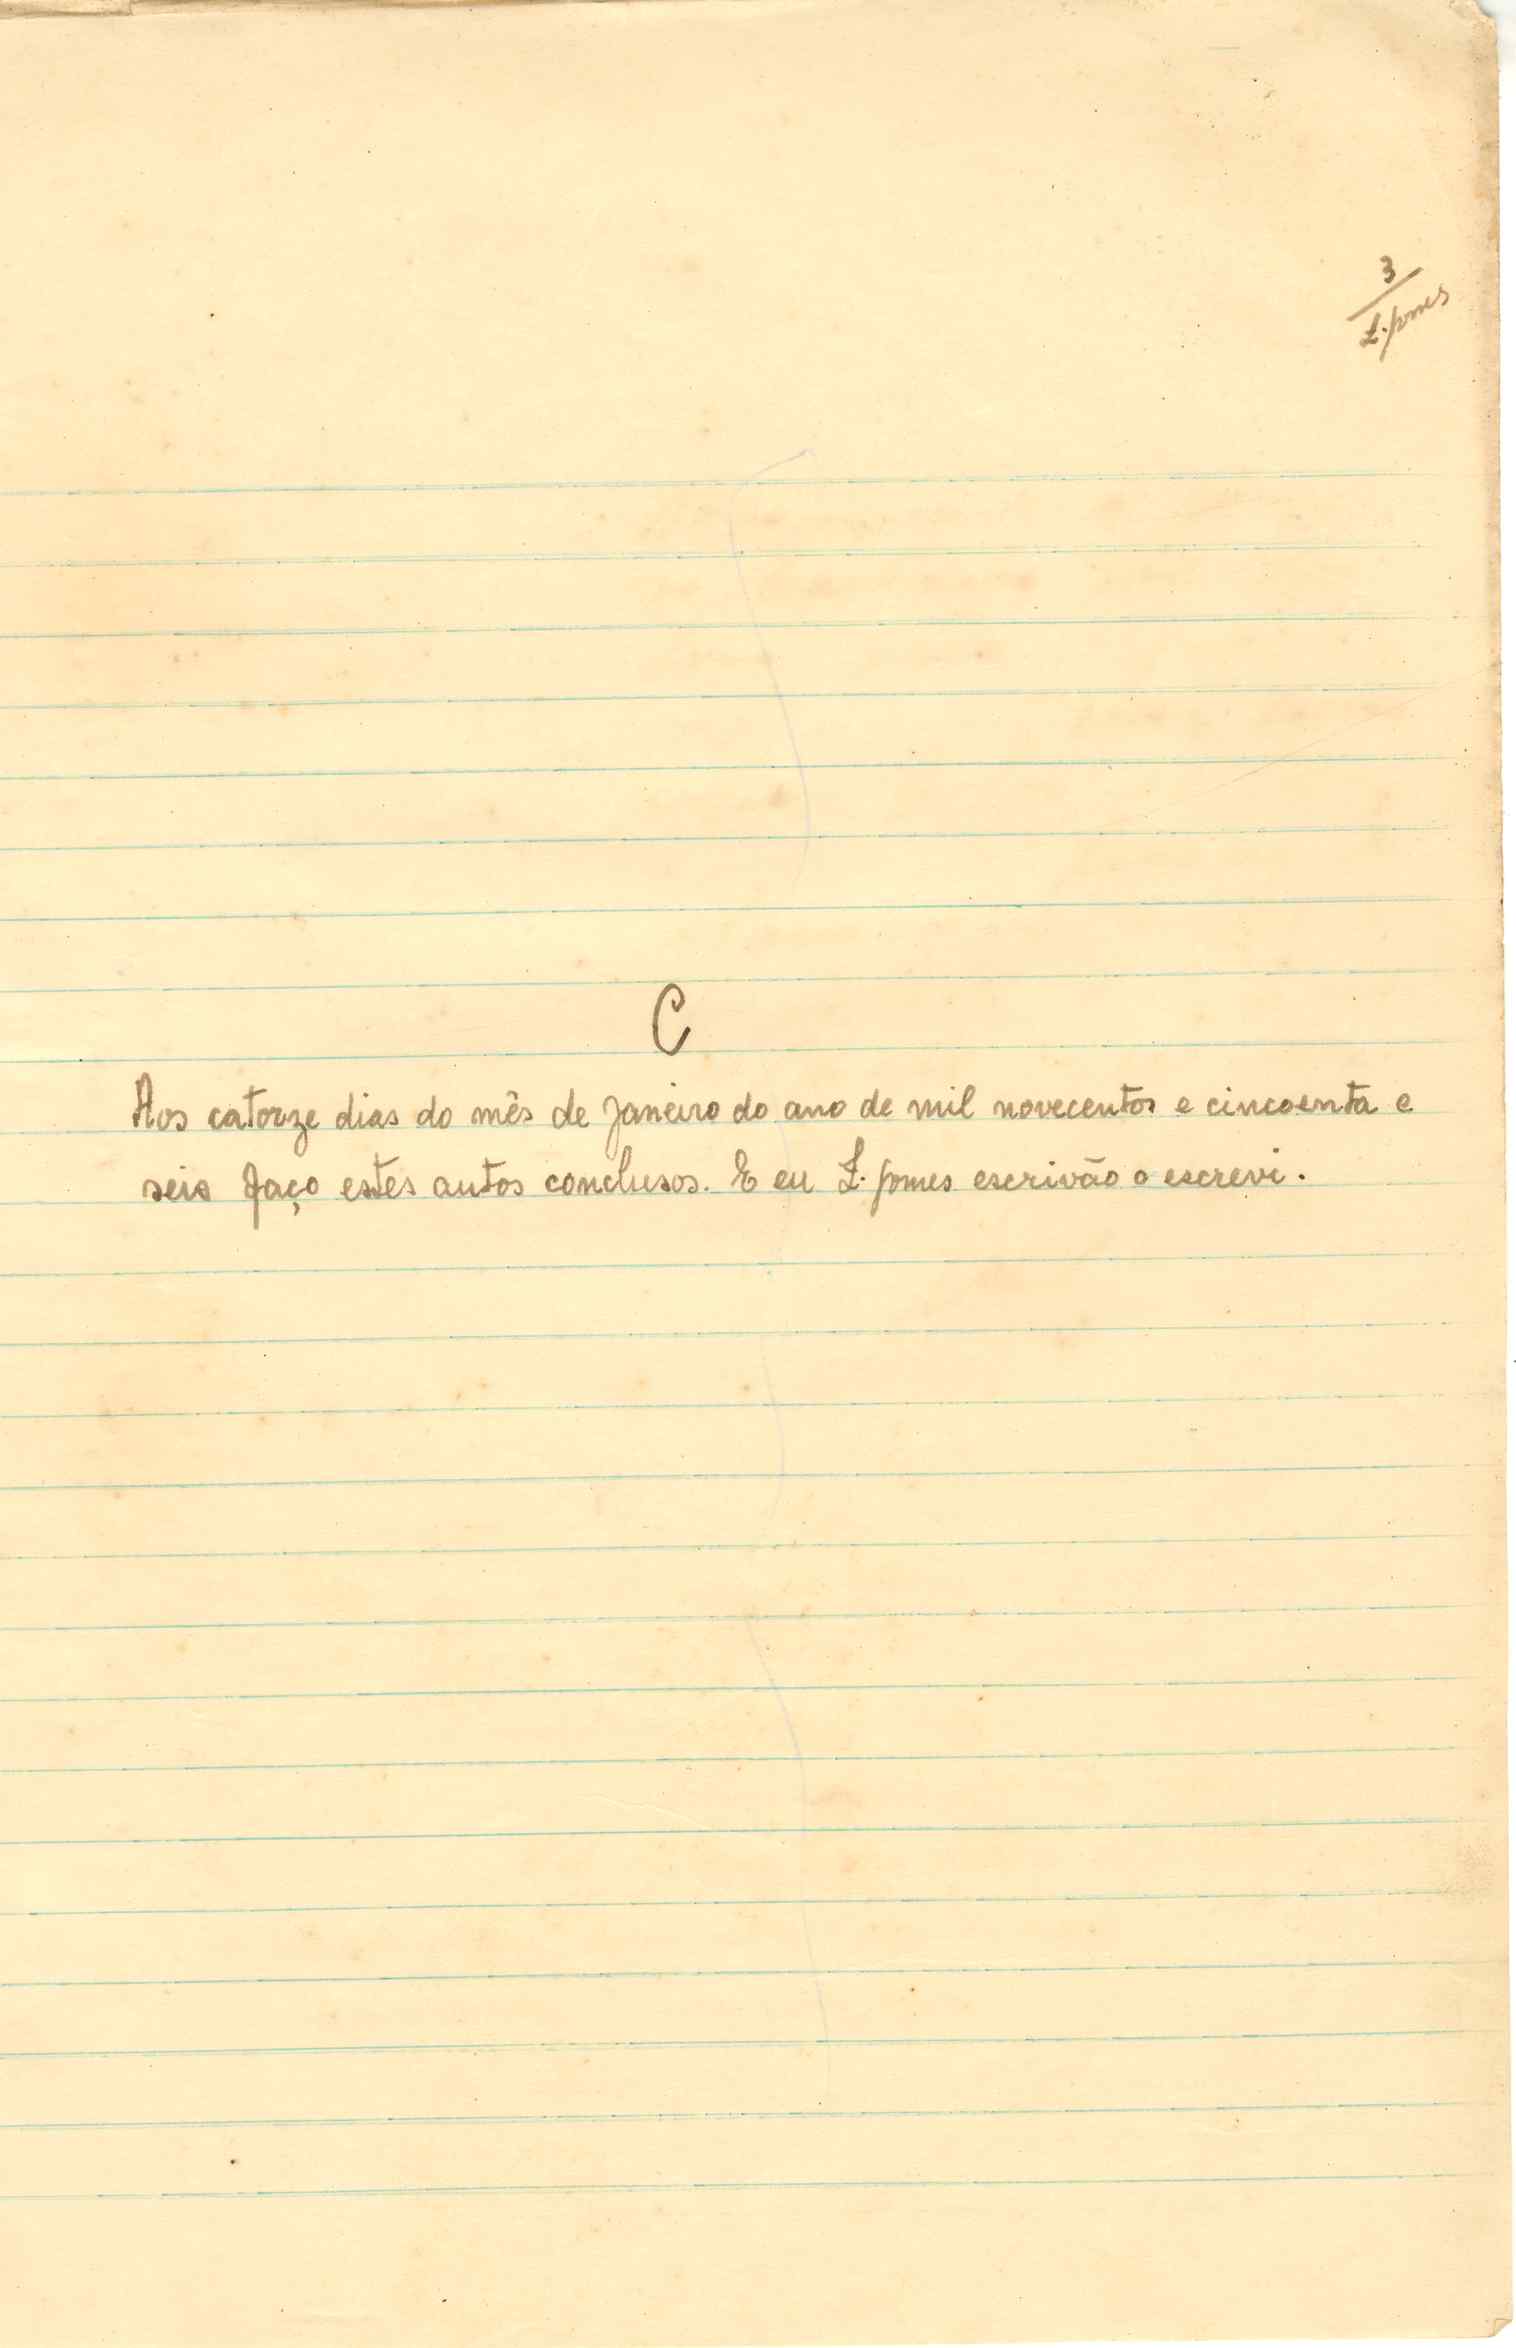 3
L. Gomes
C
Aos catorze dias do mês de Janeiro do ano de mil novecentos e cincoenta e
seis faço estes autos conclusos. E eu L. Gomes escrivão o escrevi.